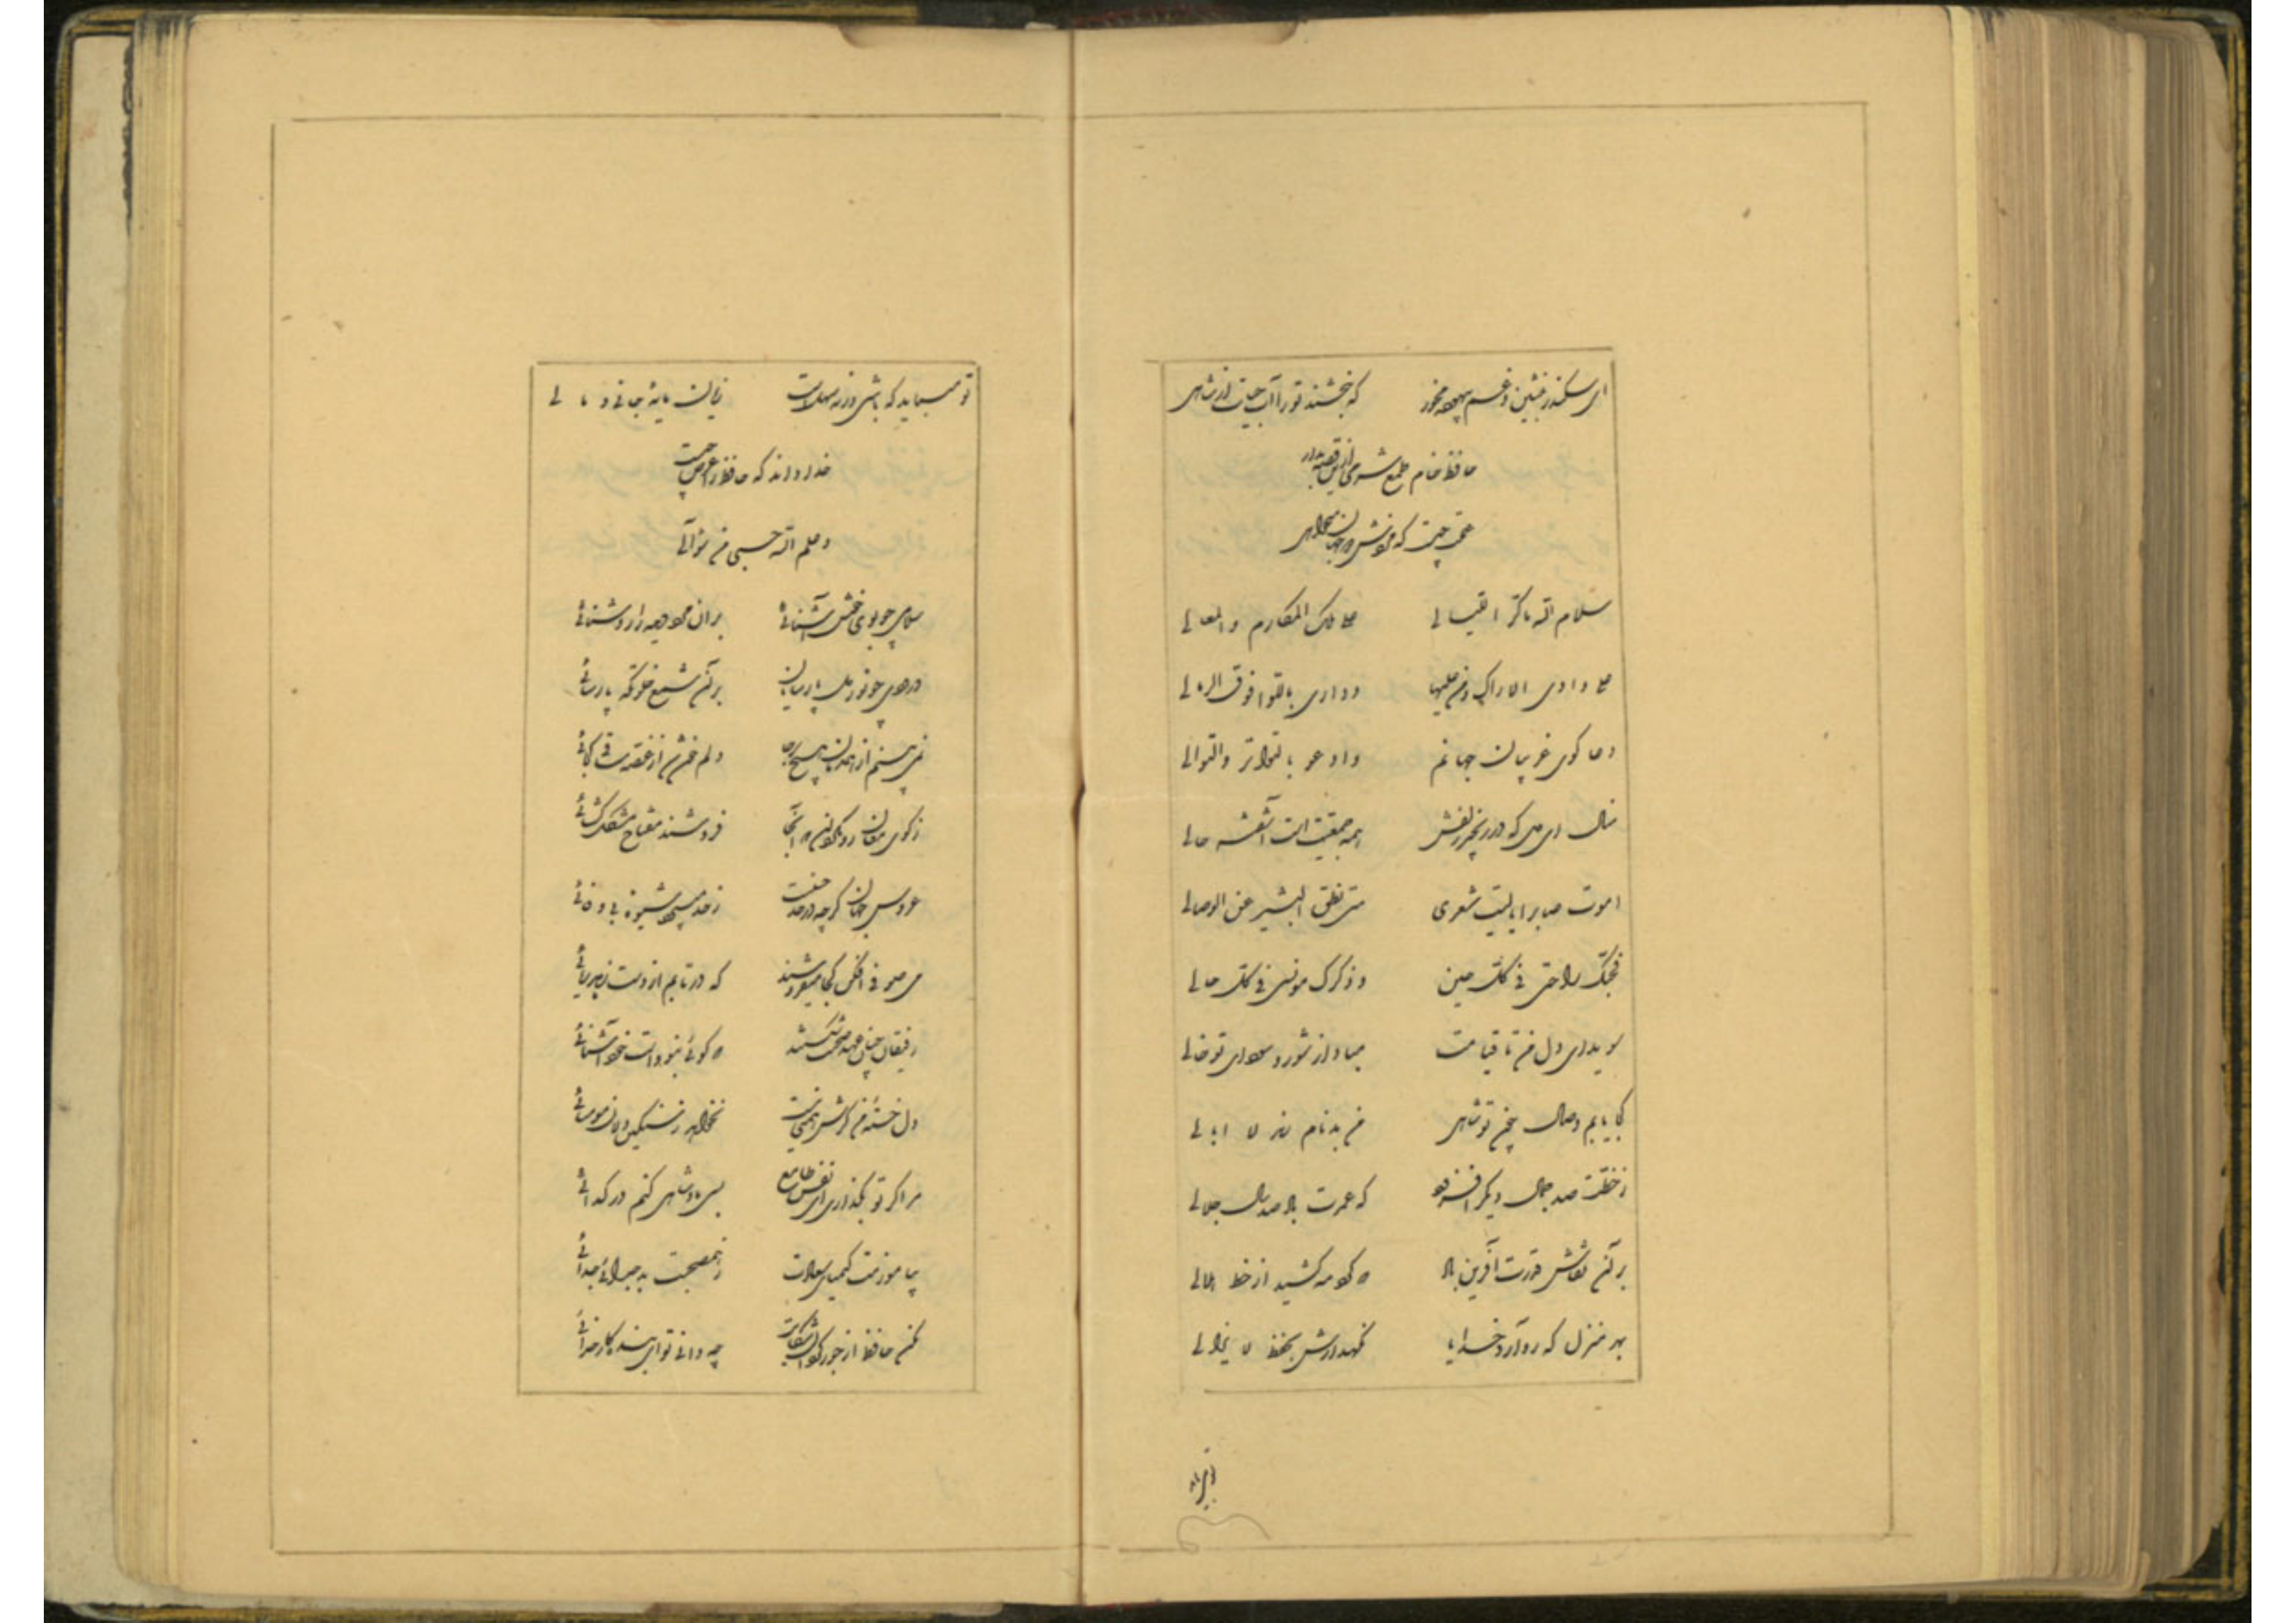 ای سکندر بنشین و غم بیهوده مخور که نبخشند تو را آب حیات از شاهی
حافظ خام طمع شرمی ازین قصه بدار
عملت چیست که مزدش دو جهان میخواهی
سلام الله ما کر اللیالی علی ملک المکارم و المعالی
علی وادی الاراک و من علیها و داری باللوا فوق الرمالی
دعا گوی غریبان جهانم و ادعو بالتواتر و التوالی
منال ای دل که در زنجیر زلفش همه جمعیت است آشفته حالی
اموت صبابرا یا لیت شعری متی نطق البشیر عن الوصالی
فحبک راحتی فی کل حین و ذکرک مونسی فی کل حالی
سویدای دل من تا قیامت مباد از شور و سودای تو خالی
کجا یابم وصال چون تو شاهی من بدنام رند لا ابالی
ز خطت صد جمال دیگر افزود که عمرت باد صد سال جلالی
بر آن نقاش قدرت آفرین باد که گرد مه کشید از خط هلالی
بهر منزل که رو آرد خدایا نگهدارش بحفظ لا یزالی
تو میباید که باشی ورنه سهلست زیان مایهٔ جانی و مالی
خدا داند که حافظ را غرض چیست
و علم الله حسبی من سؤالی
سلامی چو بوی خوش آشنائی بران مردم دیده را روشنائی
درودی چو نور دل پارسایان بر آن شمع خلوتگه پارسائی
نمی بینم از همدمان هیچ بر جا دلم خون شد از غصه ساقی کجائی
ز کوی مغان رو مگردان که آنجا فروشند مفتاح مشکل گشائی
عروس جهان گرچه در حد حسنست ز حد میبرد شیوهٔ بی وفائی
می صوفی افکن کجا میفروشند که در تابم از دست زهد ریائی
رفیقان چنان عهد صحبت شکستند که گوئی نبودست خود آشنائی
دل خستهٔ من گرش همتی هست نخواهد ز سنگین دلان مومیائی
مرا گر تو بگذاری ای نفس طامع بسی پادشاهی کنم در گدائی
بیاموزمت کیمیای سعادت ز هم صحبت بد جدائی جدائی
مکن حافظ از جور گردون شکایت چه دانی تو ای بنده کار خدائی